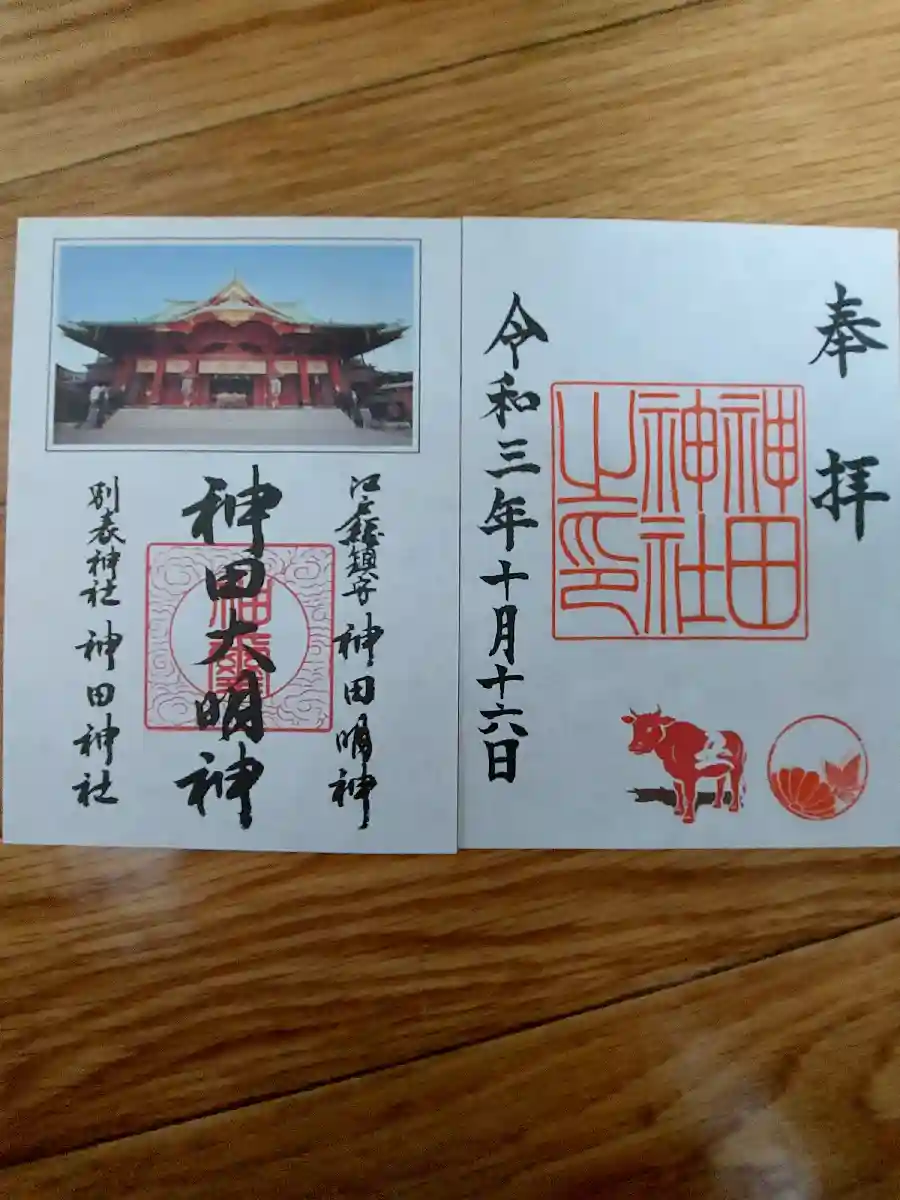 奉拝
神田神社之印
令和三年十月十六日
江戸総鎮守 神田明神
神田大明神
別表神社 神田神社